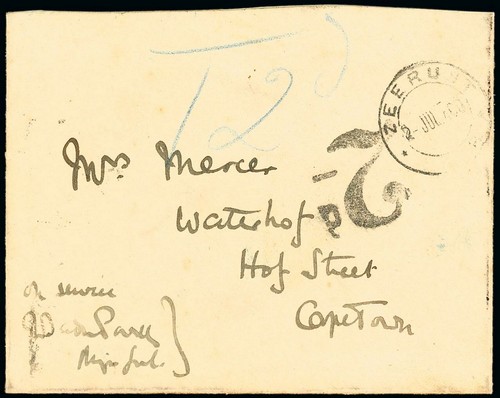 T2d
ZEERUST
2 JUL
2d
Mrs Mercer
Waterhof
Hof Street
CapeTown
on service